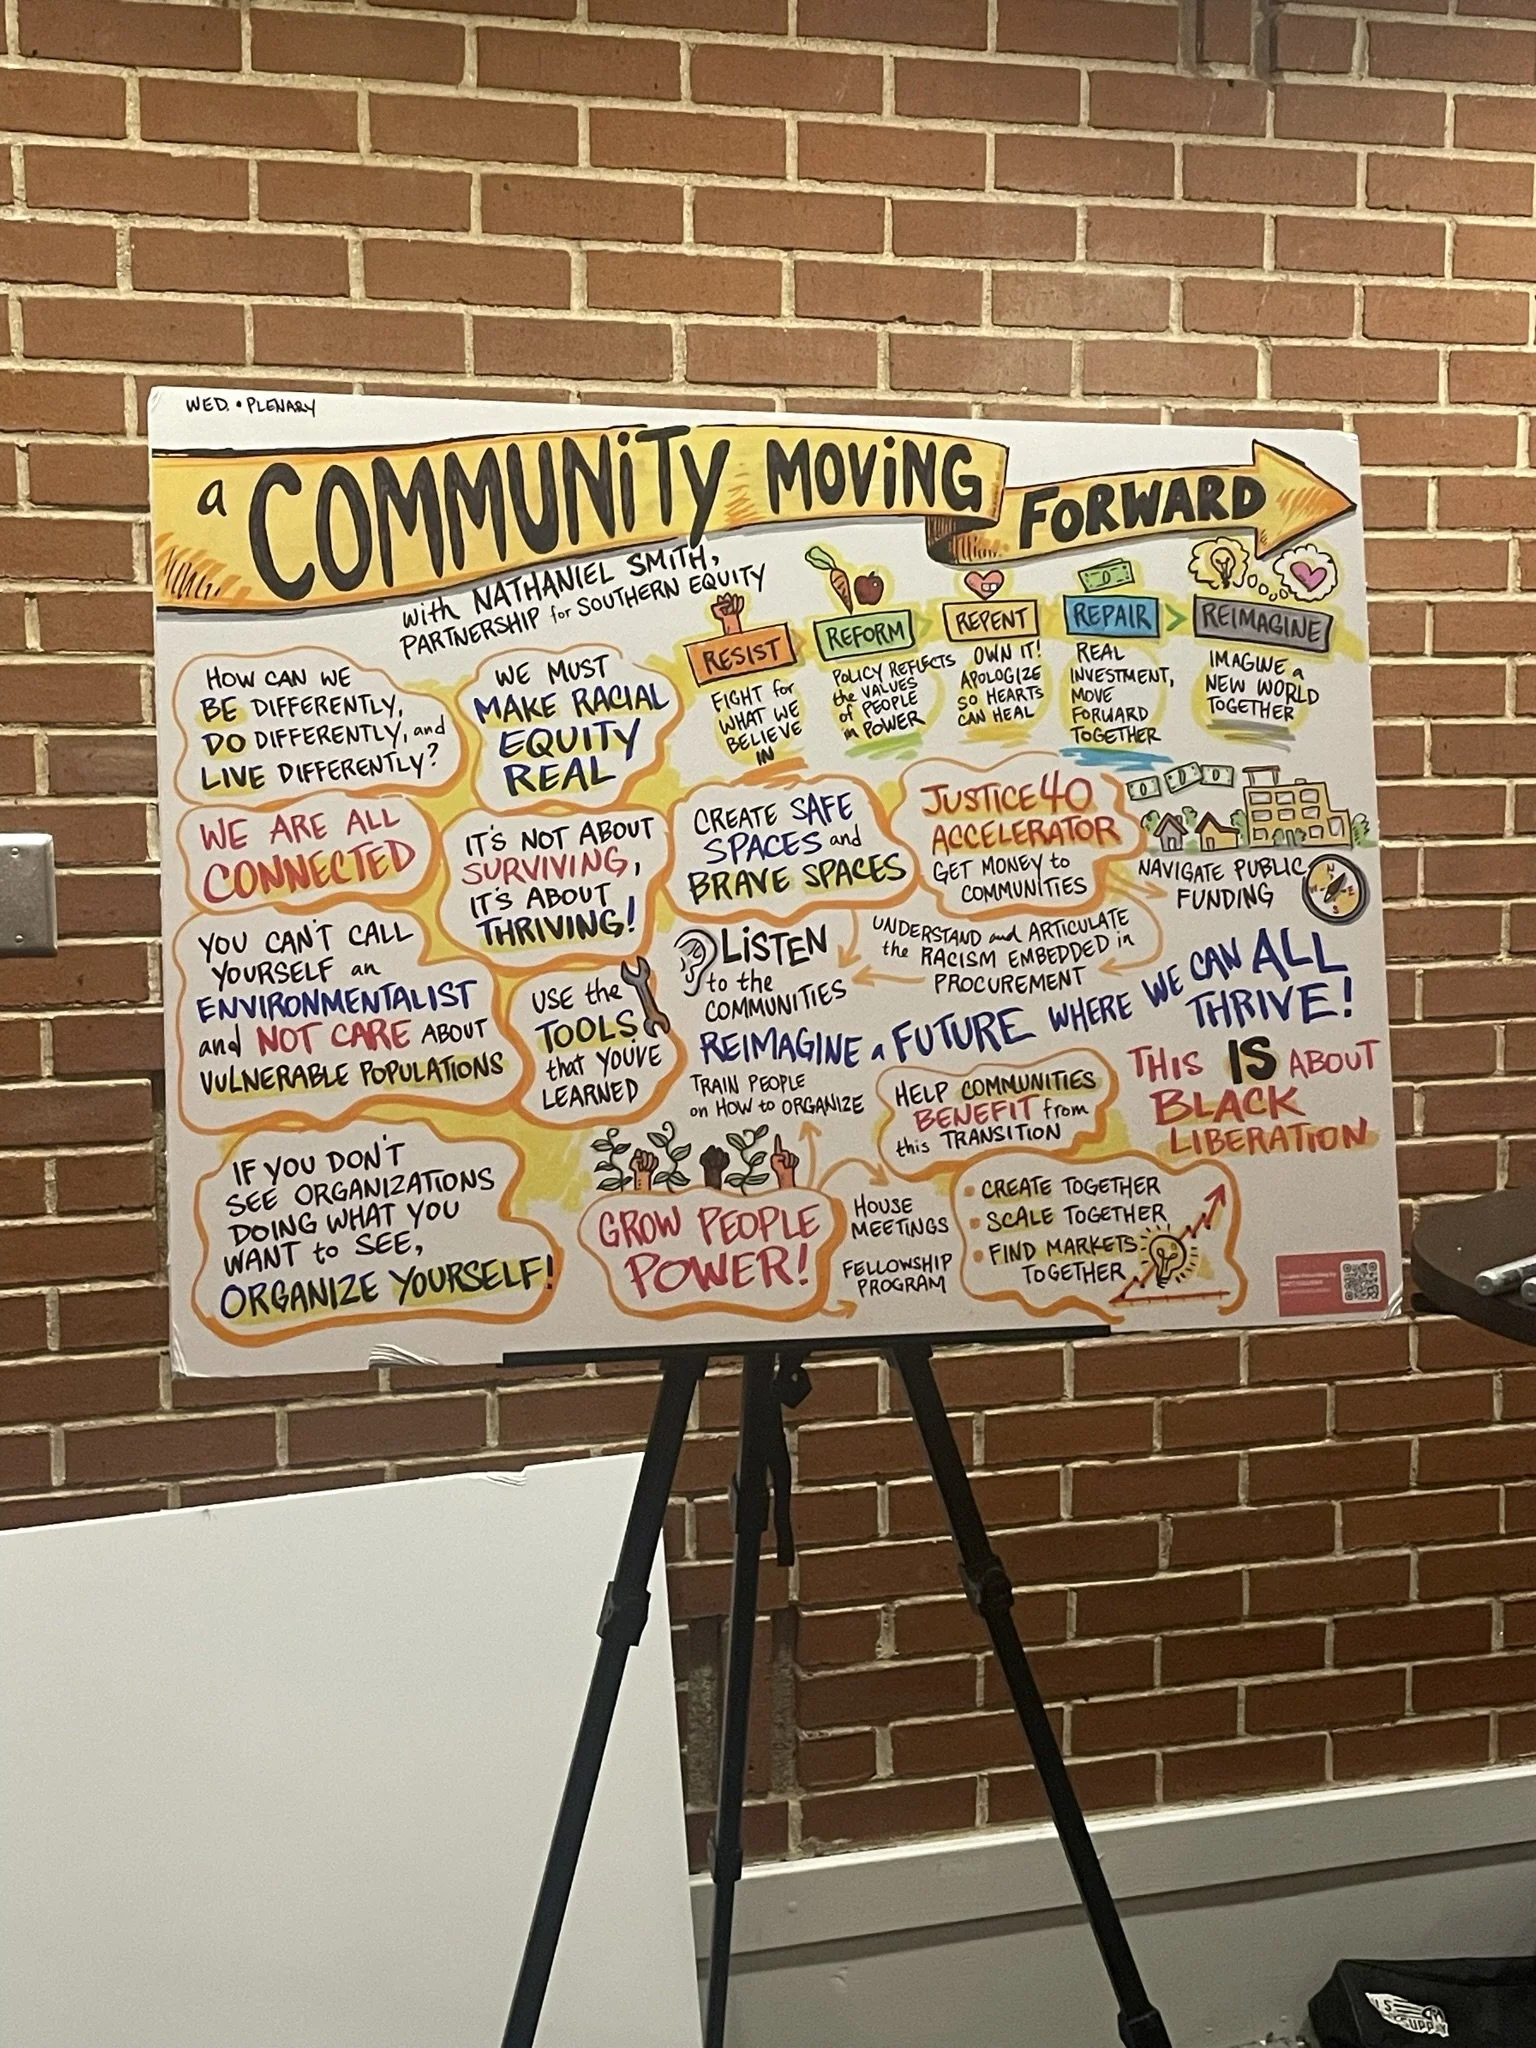 WED. • PLENARY
a COMMUNITY MOVING FORWARD
with NATHANIEL SMITH,
PARTNERSHIP for SOUTHERN EQUITY
RESIST
FIGHT for
WHAT WE
BELIEVE
IN
REFORM
POLICY REFLECTS
the VALUES
of PEOPLE
in POWER
REPENT
OWN IT!
APOLOGIZE
SO HEARTS
CAN HEAL
REPAIR
REAL
INVESTMENT,
MOVE
FORWARD
TOGETHER
REIMAGINE
IMAGINE a
NEW WORLD
TOGETHER
HOW CAN WE
BE DIFFERENTLY,
DO DIFFERENTLY, and
LIVE DIFFERENTLY?
WE MUST
MAKE RACIAL
EQUITY
REAL
WE ARE ALL
CONNECTED
IT'S NOT ABOUT
SURVIVING,
IT'S ABOUT
THRIVING!
CREATE SAFE
SPACES and
BRAVE SPACES
JUSTICE40
ACCELERATOR
GET MONEY to
COMMUNITIES
NAVIGATE PUBLIC
FUNDING
N
E
S
W
UNDERSTAND and ARTICULATE
the RACISM EMBEDDED in
PROCUREMENT
LISTEN
to the
COMMUNITIES
YOU CAN'T CALL
YOURSELF an
ENVIRONMENTALIST
and NOT CARE ABOUT
VULNERABLE POPULATIONS
USE the
TOOLS
that YOU'VE
LEARNED
REIMAGINE a FUTURE WHERE WE CAN ALL
THRIVE!
TRAIN PEOPLE
on HOW to ORGANIZE
HELP COMMUNITIES
BENEFIT from
this TRANSITION
THIS IS ABOUT
BLACK
LIBERATION
IF YOU DON'T
SEE ORGANIZATIONS
DOING WHAT YOU
WANT to SEE,
ORGANIZE YOURSELF!
GROW PEOPLE
POWER!
HOUSE
MEETINGS
FELLOWSHIP
PROGRAM
• CREATE TOGETHER
• SCALE TOGETHER
• FIND MARKETS
TOGETHER